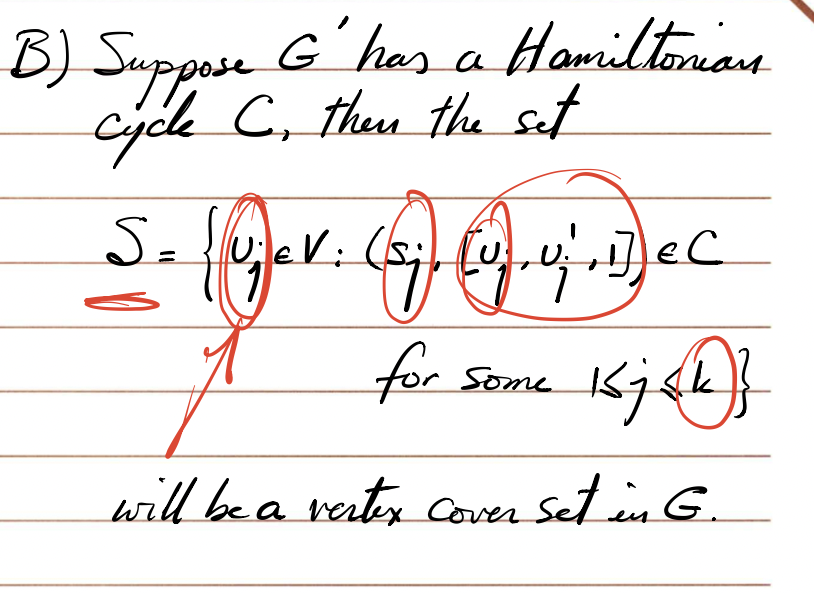 B) Suppose G' has a Hamiltonian
cycle C, then the set
S = { υj ∈ V : (sj, [υj, υj', 1]) ∈ C
for some 1 ≤ j ≤ k }
will be a vertex cover set in G.